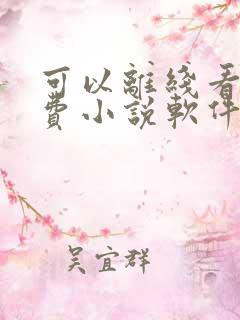 可以離綫看
費小說軟件
吴宜群